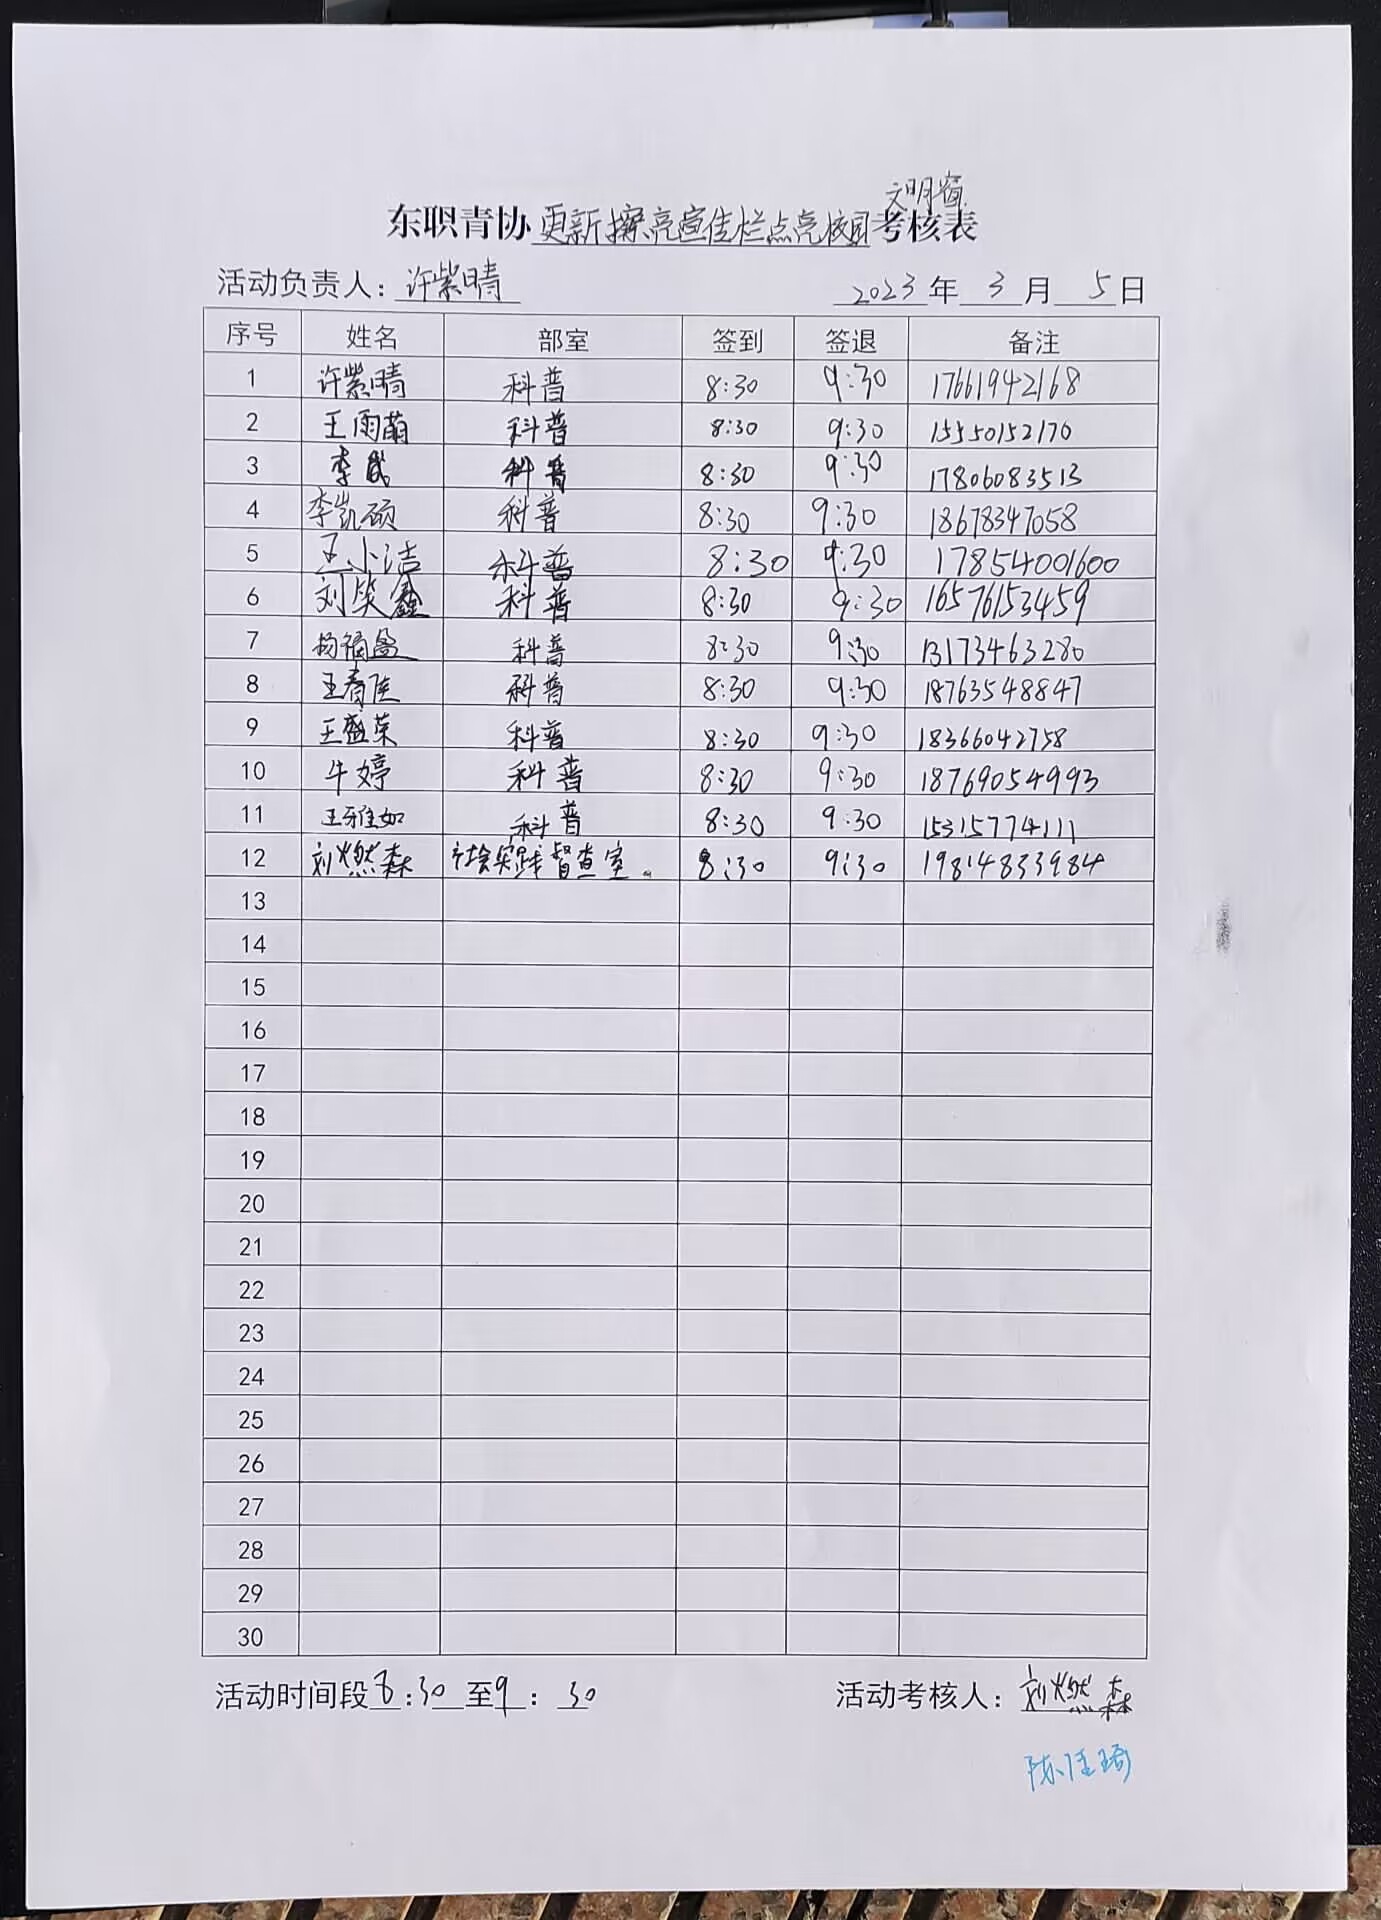 文明宿
东职青协更新擦亮宣传栏点亮校园考核表
活动负责人：许紫晴 2023年3月5日
序号 姓名 部室 签到 签退 备注
1 许紫晴 科普 8:30 9:30 17661942168
2 王雨萌 科普 8:30 9:30 15550152170
3 李 科普 8:30 9:30 17806083513
4 李凯硕 科普 8:30 9:30 18678347058
5 王小洁 科普 8:30 9:30 17854001600
6 刘笑鑫 科普 8:30 9:30 16576153459
7 杨福盈 科普 8:30 9:30 13173463280
8 王春佳 科普 8:30 9:30 18763548847
9 王盛荣 科普 8:30 9:30 18366042758
10 牛婷 科普 8:30 9:30 18769054993
11 王雅如 科普 8:30 9:30 15315774111
12 刘燃森 社会实践督查室。 8:30 9:30 19814833984
13
14
15
16
17
18
19
20
21
22
23
24
25
26
27
28
29
30
活动时间段8:30至9：30 活动考核人：刘燃森
陈佳琦